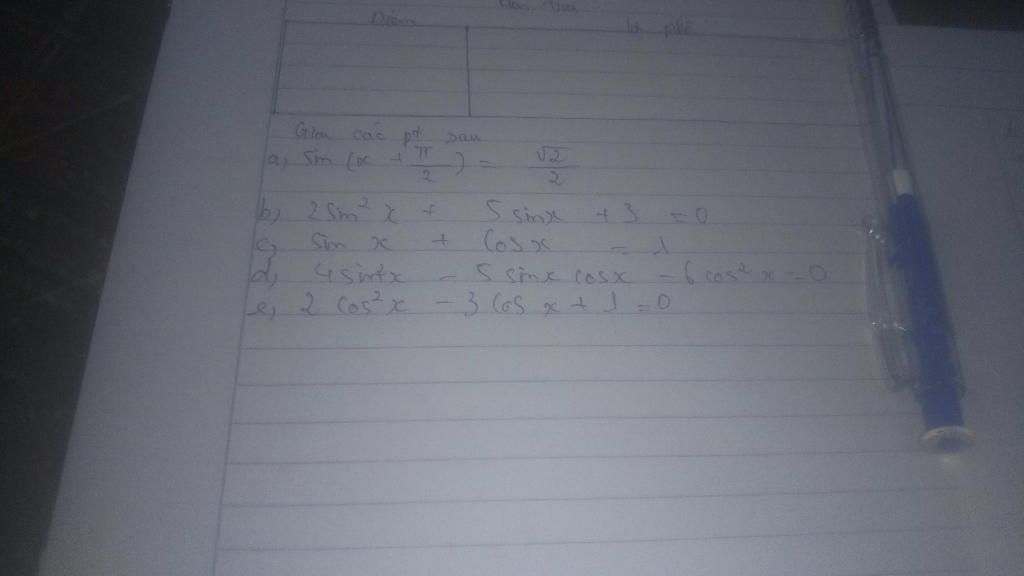 Điểm Lời phê
Giải các pt sau
a, sin (x + π/2) = √2/2
b, 2 sin² x + 5 sinx + 3 = 0
c, sin x + cos x = 1
d, 4 sin²x - 5 sinx cosx - 6 cos² x = 0
e, 2 cos² x - 3 cos x + 1 = 0